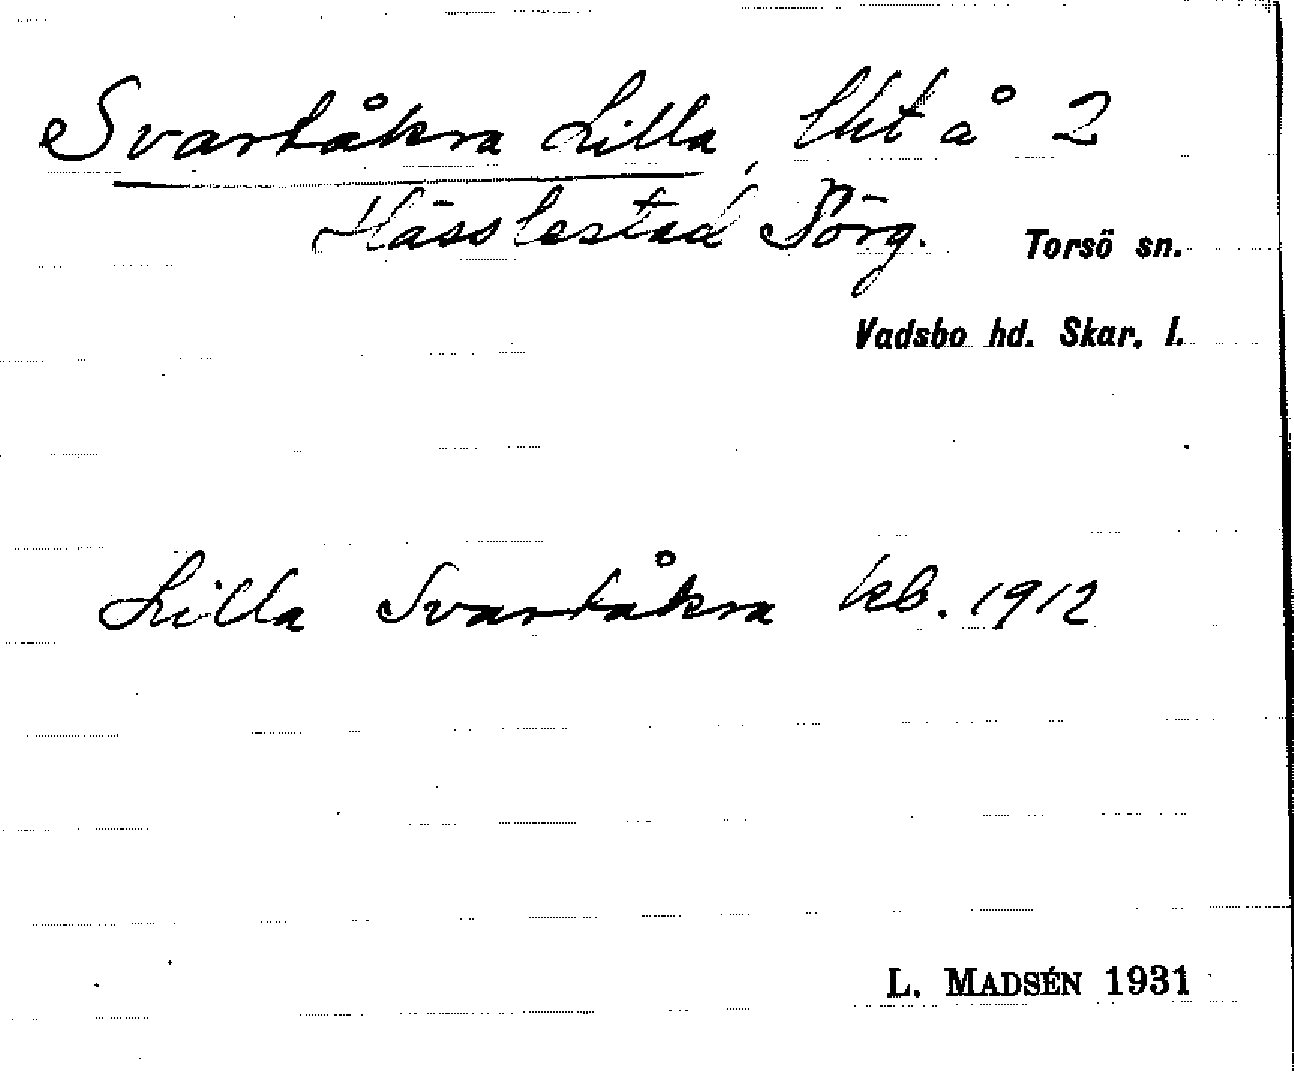 Svartåkra Lilla, lht å 2
Hässlestad Jörg. Torsö sn.
Vadsbo hd. Skar. l.
Lilla Svartåkra kb. 1912
L. MADSÉN 1931